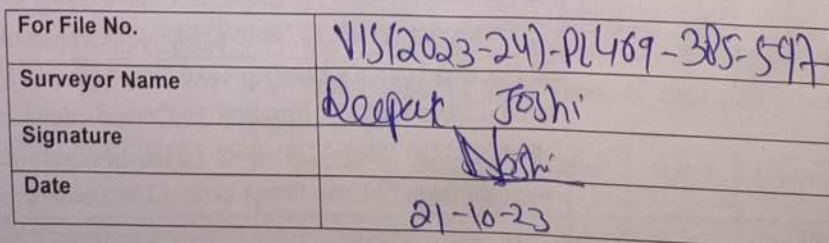 For File No. VIS(2023-24)-PL469-385-597
Surveyor Name Deepak Joshi
Signature Joshi
Date 21-10-23